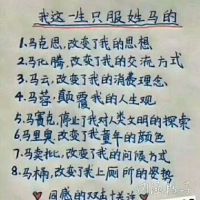 我这一生只服姓马的
1.马克思,改变了我的思想
2.马化腾,改变了我的交流方式
3.马云,改变了我的消费理念
4.马蓉,颠覆我的人生观
5.马赛克,停止了我对人类文明的探索
6.马里奥,改变了我童年的颜色
7.马卖批,改变了我的问候方式
8.马桶,改变了我上厕所的姿势
同感的双击关注